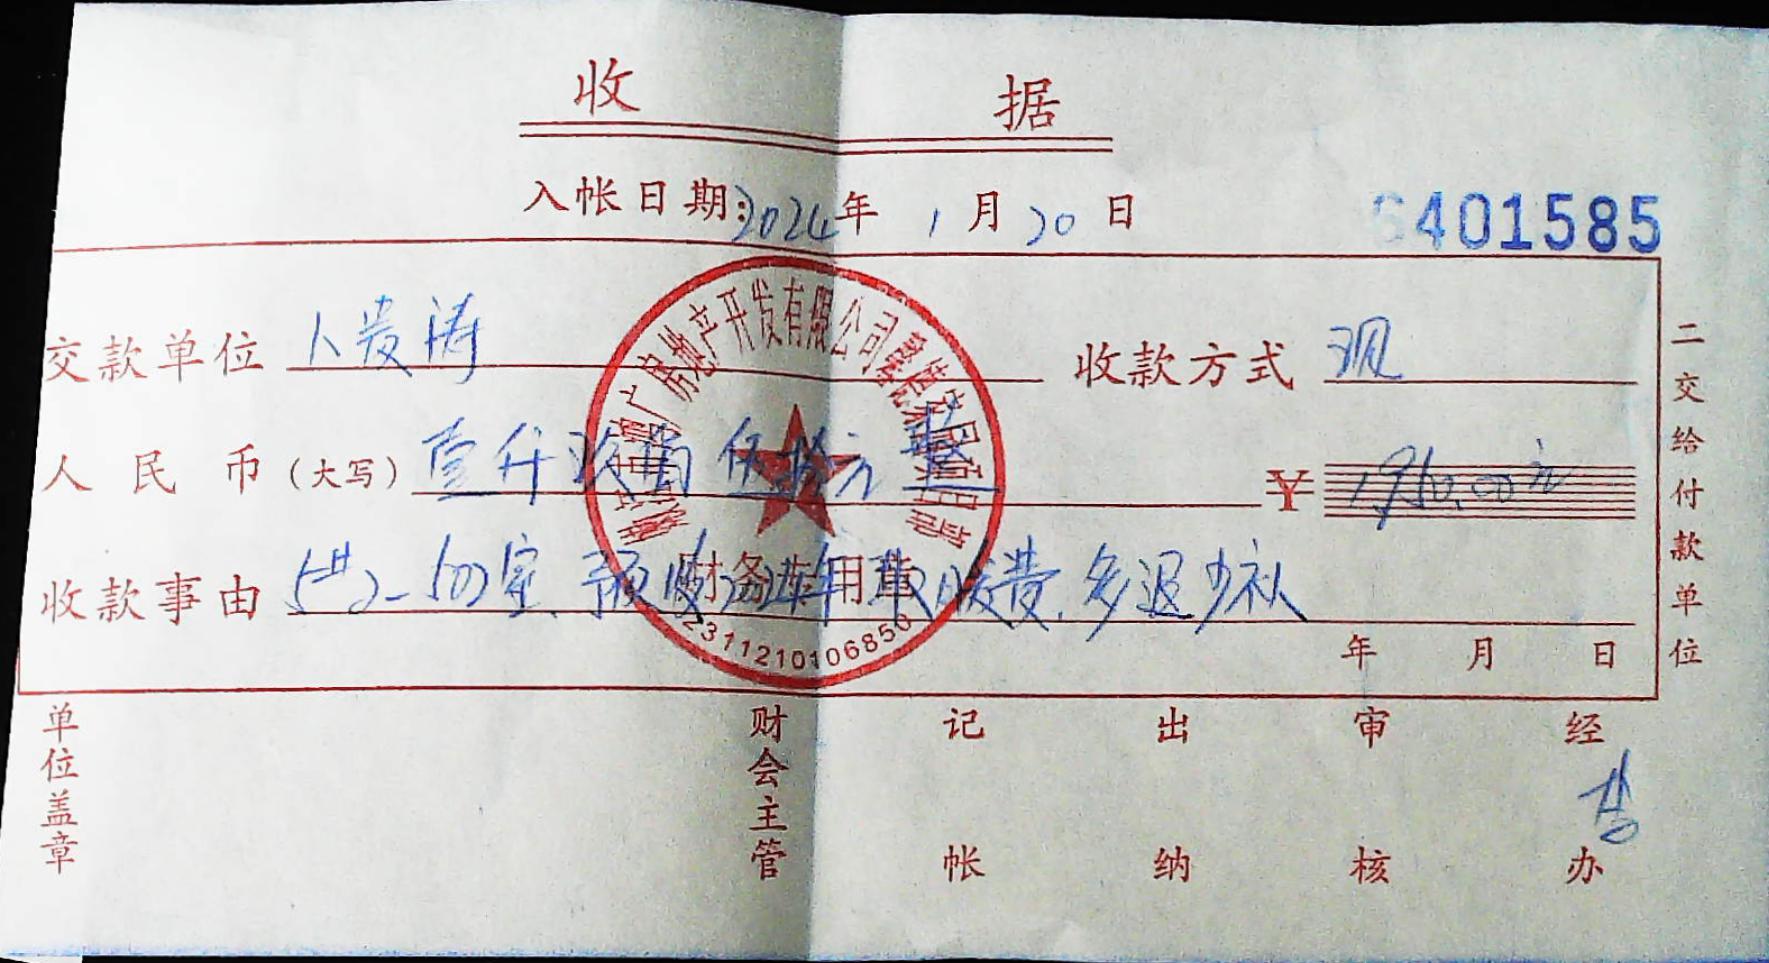 收 据
入帐日期:2024年 1月20日
6401585
交款单位 卜发涛
收款方式 现
人民币(大写) 壹仟玖佰伍拾元整
¥ 1,950.00元
收款事由 5#2-502室、预收 取暖费,多退少补
年 月 日
二交给付款单位
房地产开发有限公司
财务专用章
2311210106850
单位盖章
财会主管
记帐
出纳
审核
经办